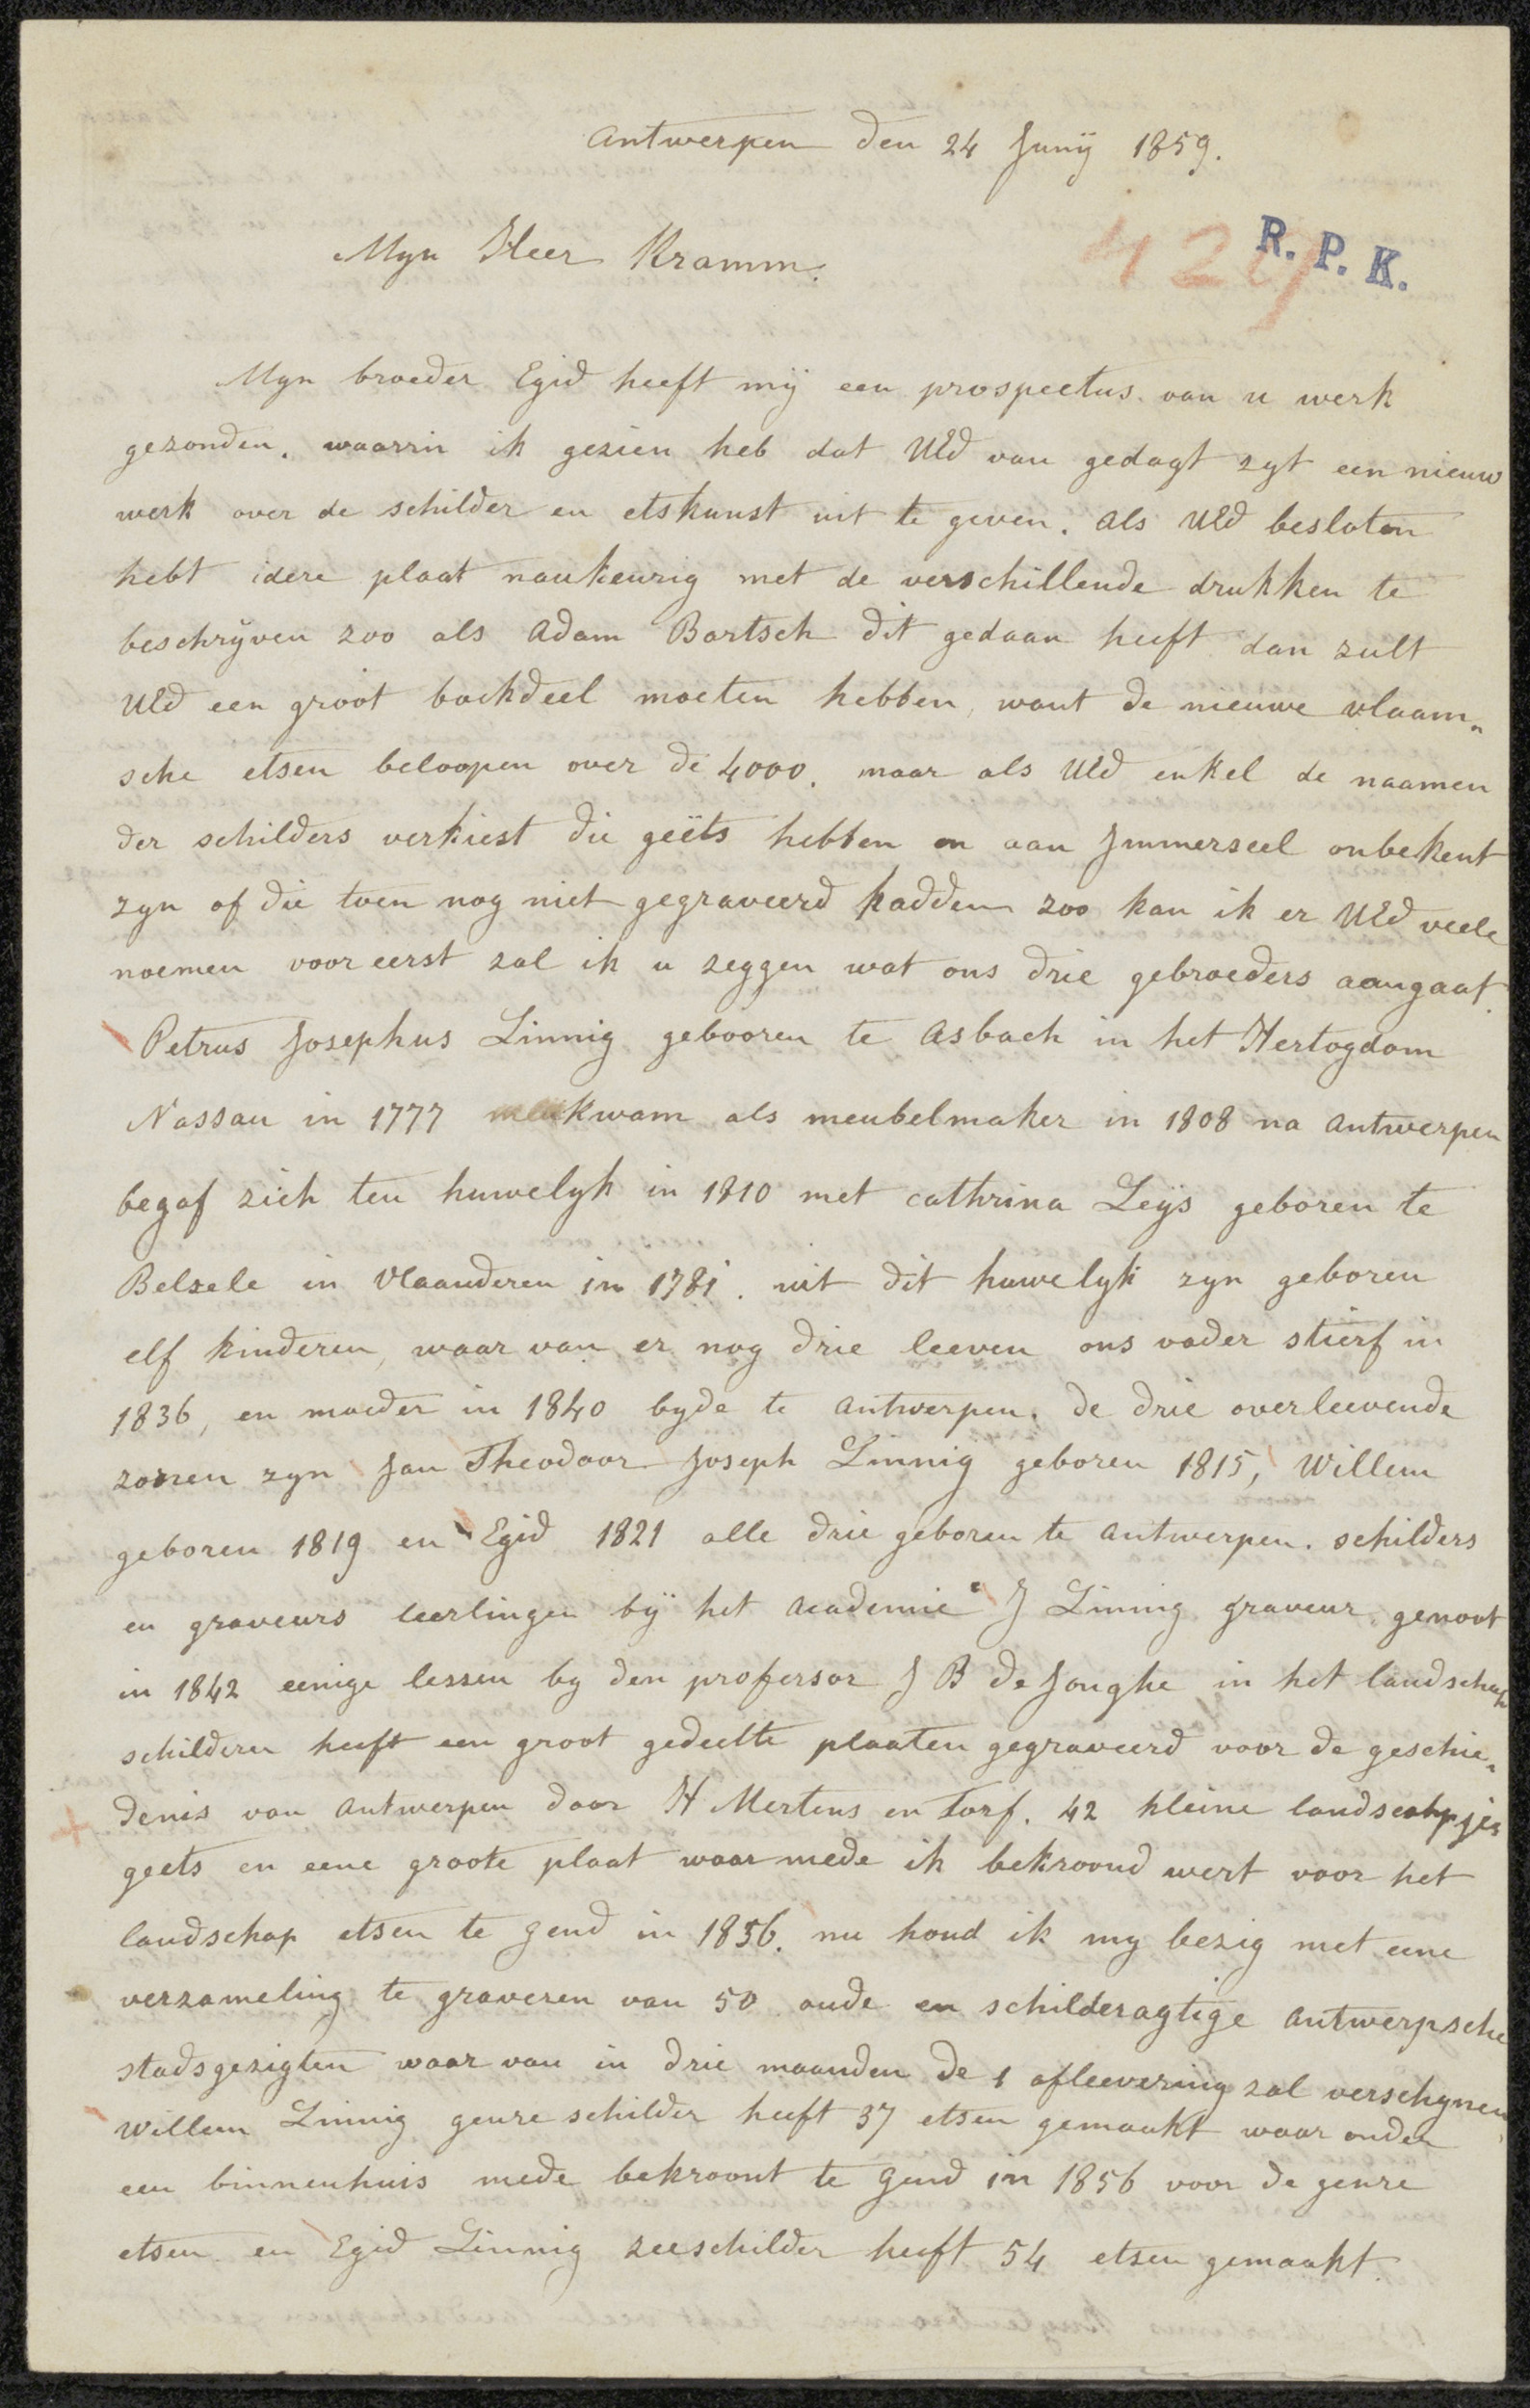 Antwerpen den 24 Junij 1859.
R. P. K.
429
Myn Heer Kramm.
Myn broeder Egid heeft mij een prospectus van u werk
gezonden, waarin ik gezien heb dat UEd van gedagt zyt een nieuw
werk over de schilder en etskunst uit te geven. als UEd besloten
hebt idere plaat naukeurig met de verschillende drukken te
beschrijven zoo als Adam Bartsch dit gedaan heeft dan zult
UEd een groot boekdeel moeten hebben, want de nieuwe vlaam„
sche etsen beloopen over de 4000. maar als UEd enkel de naamen
der schilders verkiest die geëts hebben en aan Immerseel onbekent
zyn of die toen nog niet gegraveerd hadden zoo kan ik er UEd veele
noemen voor eerst zal ik u zeggen wat ons drie gebroeders aangaat.
Petrus Josephus Linnig gebooren te Asbach in het Hertogdom
Nassau in 1777 kwam als meubelmaker in 1808 na Antwerpen
begaf zich ten huwelyk in 1810 met cathrina Leijs geboren te
Belsele in Vlaanderen in 1781. uit dit huwelyk zyn geboren
elf kinderen, waar van er nog drie leeven ons vader stierf in
1836, en moeder in 1840 byde te Antwerpen. de drie overleevende
zonen zyn Jan Theodoor Joseph Linnig geboren 1815, Willem
geboren 1819 en Egid 1821 alle drie geboren te Antwerpen. schilders
en graveurs leerlingen bÿ het Academie J Linnig graveur, genoot
in 1842 eenige lessen by den professor J B de Jonghe in het landschap
schilderen heeft een groot gedeelte plaaten gegraveerd voor de geschie„
denis van Antwerpen door H Mertens en Torf. 42 kleine landschapjes
geets en eene groote plaat waar mede ik bekroond wert voor het
landschap etsen te gend in 1856. nu houd ik my bezig met eene
verzameling te graveren van 50 oude en schilderagtige Antwerpsche
stadsgezigten waar van in drie maanden de 1 afleevering zal verschynen,
Willem Linnig genre schilder heeft 37 etsen gemaakt waar onder
een binnenhuis mede bekroont te gend in 1856 voor de genre
etsen en Egid Linnig zeeschilder heeft 54 etsen gemaakt.